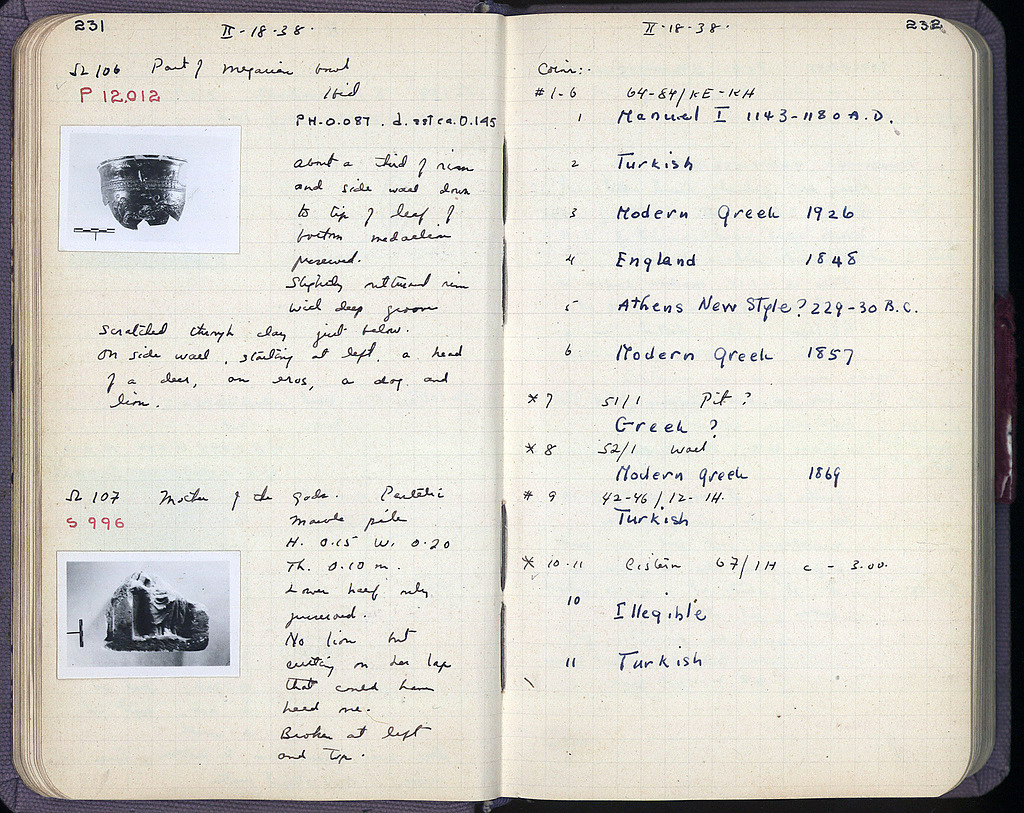 231
II-18-38.
Ω 106 Part of megarian bowl
P 12,012
Ibid
PH-0.087. d. est ca. 0.145
about a third of rim
and side wall down
to tip of leaf of
bottom medallion
preserved.
Slightly outturned rim
with deep groove
scratched through clay just below.
On side wall, starting at left, a head
of a deer, an eros, a dog and
lion.
Ω 107 Mother of the gods. Pentelic
S 996
marble
H. 0.15 W. 0.20
Th. 0.10 m.
Lower half only
preserved.
No lion but
cutting on her lap
that could have
held one.
Broken at left
and top.
232
II-18-38.
Coins:-
#1-6 64-84/KE-KH
1 Manuel I 1143-1180 A.D.
2 Turkish
3 Modern Greek 1926
4 England 1848
5 Athens New Style? 229-30 B.C.
6 Modern Greek 1857
*7 51/1 Pit?
Greek ?
*8 52/1 Wall
Modern Greek 1869
#9 42-46/12-1H.
Turkish
*10-11 Cistern 67/1H c - 3.00.
10 Illegible
11 Turkish